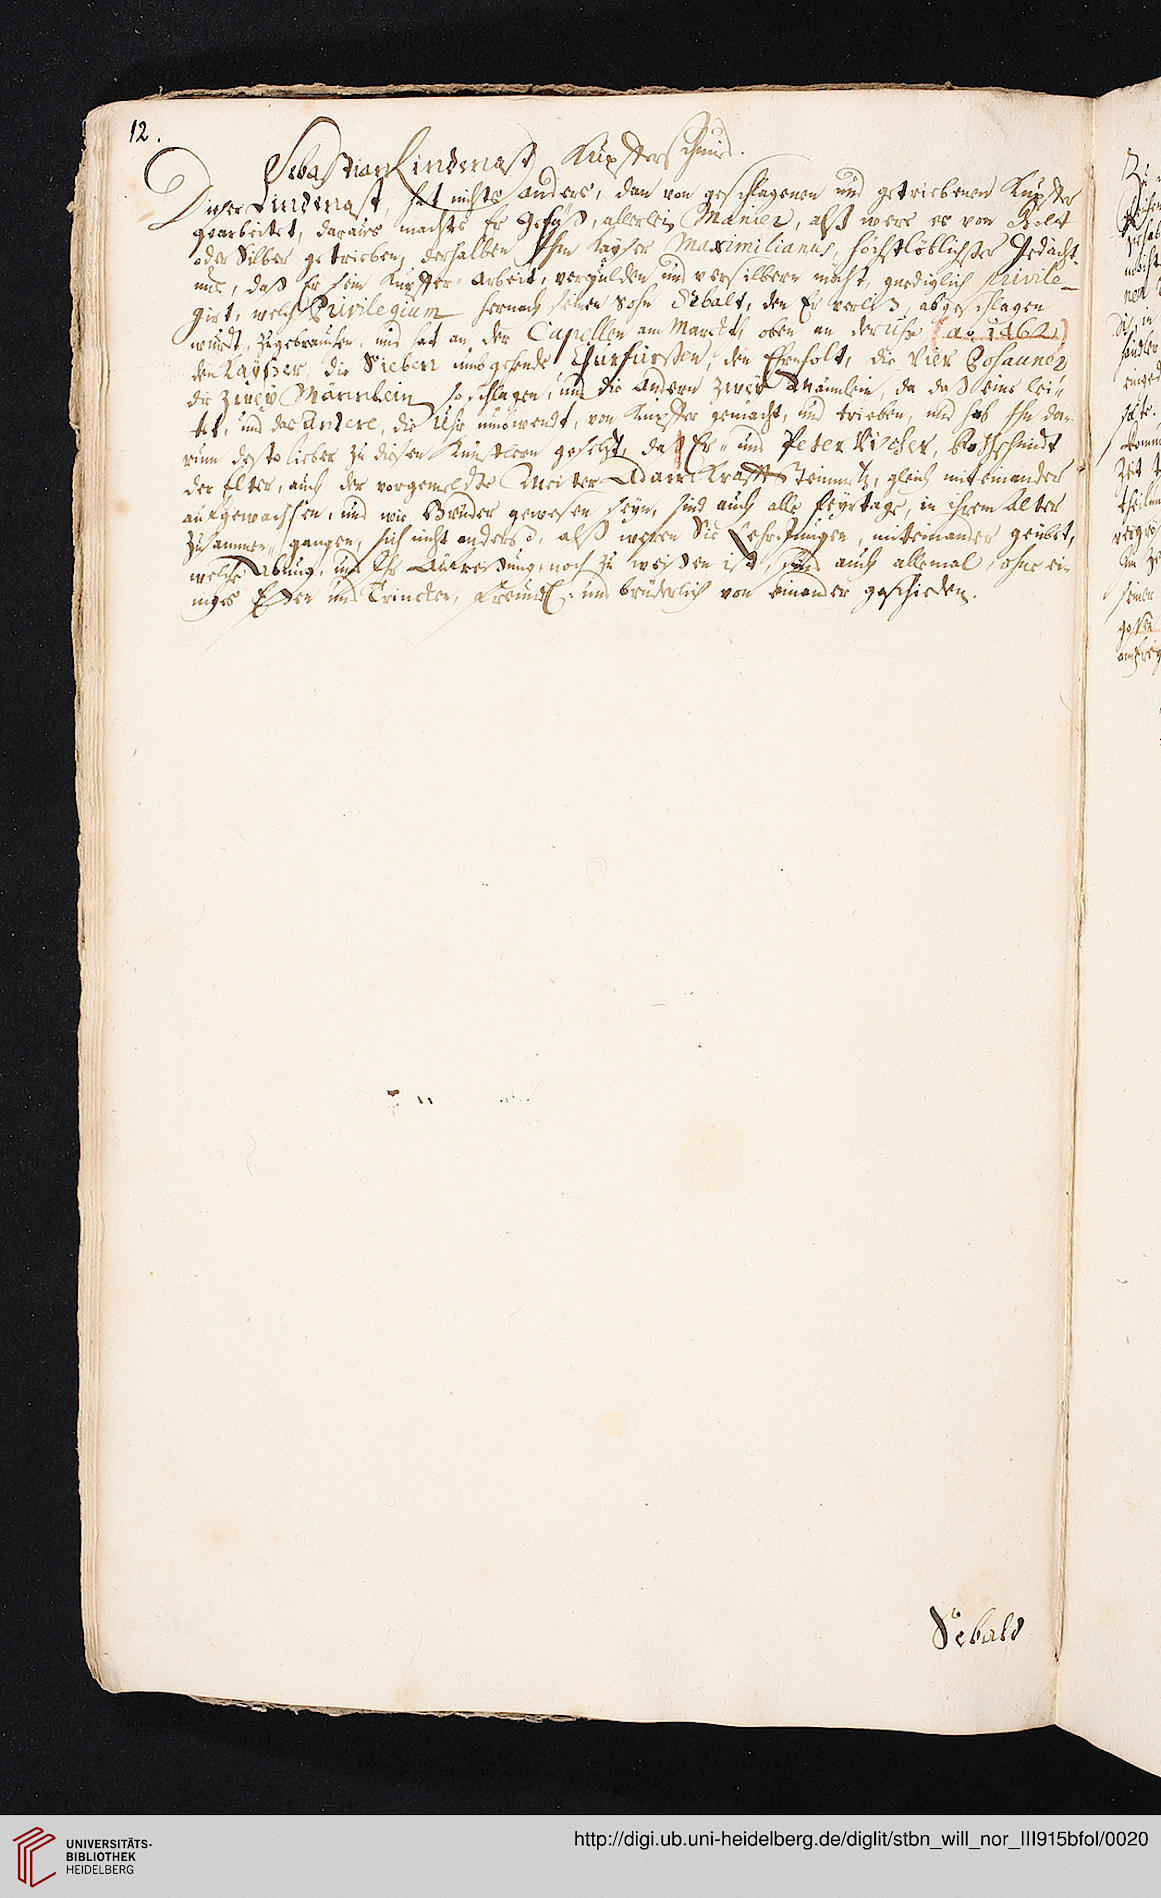 12.
Sebastian Lindenast Kupfferschmid.
Dieser Lindenast, hat nichts anders, dan von geschlagenen und getriebenen Kupffer
gearbeitet, daraus machte Er Gefäß, allerleÿ Manier, alß were es von Golt
oder Silber getrieben, derhalben Ihn Kayser Maximilianus, höchstlöblichster Gedächt-
nus, daß Er sein Kupffer-Arbeit, vergülden und versilbern möcht, gnediglich privile-
girt, welch Privilegium hernach seinen Sohn Sebalt, den Er verließ, abgeschlagen
wurdt, zugebrauchen, und hat an der Capellen am Marckt, oben an der Uhr (ao 1462.)
den Kaÿser, die Sieben umbgehende Churfürsten, den Ehrnholt, die Vier Posauner
die Zweÿ Männlein so schlagen, und die andern zweÿ Männlein, da daß eine leü-
tet, und das andere, die Uhr umbwendt, von Kupffer gemacht, und trieben, und hab Ihn da-
rum desto lieber zu diesen Künstlern gesetzt, daß Er und Peter Vischer, Rothschmidt
der Elter, auch der vorgemeldte Meister Adam Krafft Steinmetz, gleich miteinander
aufgewachssen, und wie Brüder gewesen seyn, sind auch alle Feyrtage, in ihrem Alter
zusammen gangen, sich nicht anderst, alß weren Sie Lehr-Jungen, miteinander geübet,
welche Übung, und Ihr Aufreißung, noch zu weißen ist, sind auch allemal, ohne ei-
niges Essen und Trincken, freundl: und brüderlich von einander geschieden.
Sebald
UNIVERSITÄTS-
BIBLIOTHEK
HEIDELBERG
http://digi.ub.uni-heidelberg.de/diglit/stbn_will_nor_III915bfol/0020